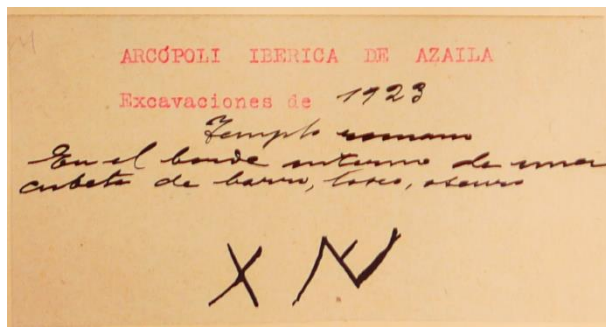 ARCÓPOLI IBERICA DE AZAILA
Excavaciones de 1923
Templo romano
En el borde interno de una
cubeta de barro, tosco, oscuro